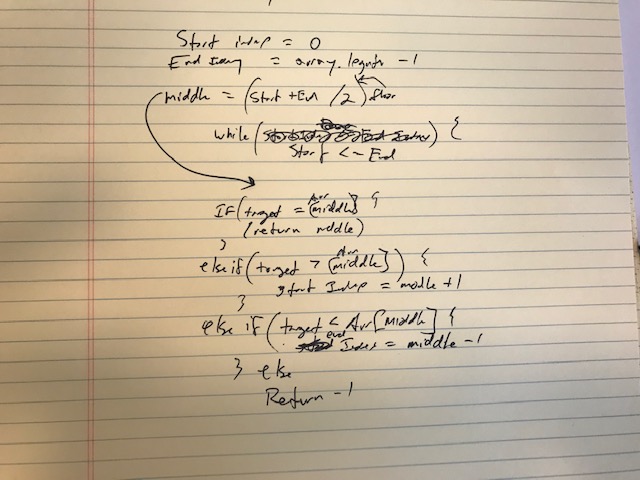 Start index = 0
End Index = array.length -1
middle = (Start + End /2) floor
while (Start <= End) {
IF (target = Arr[middle] {
(return middle)
}
else if (target > Arr[middle]) {
start Index = middle +1
}
else if (target < Arr[Middle] {
end Index = middle -1
} else
Return -1